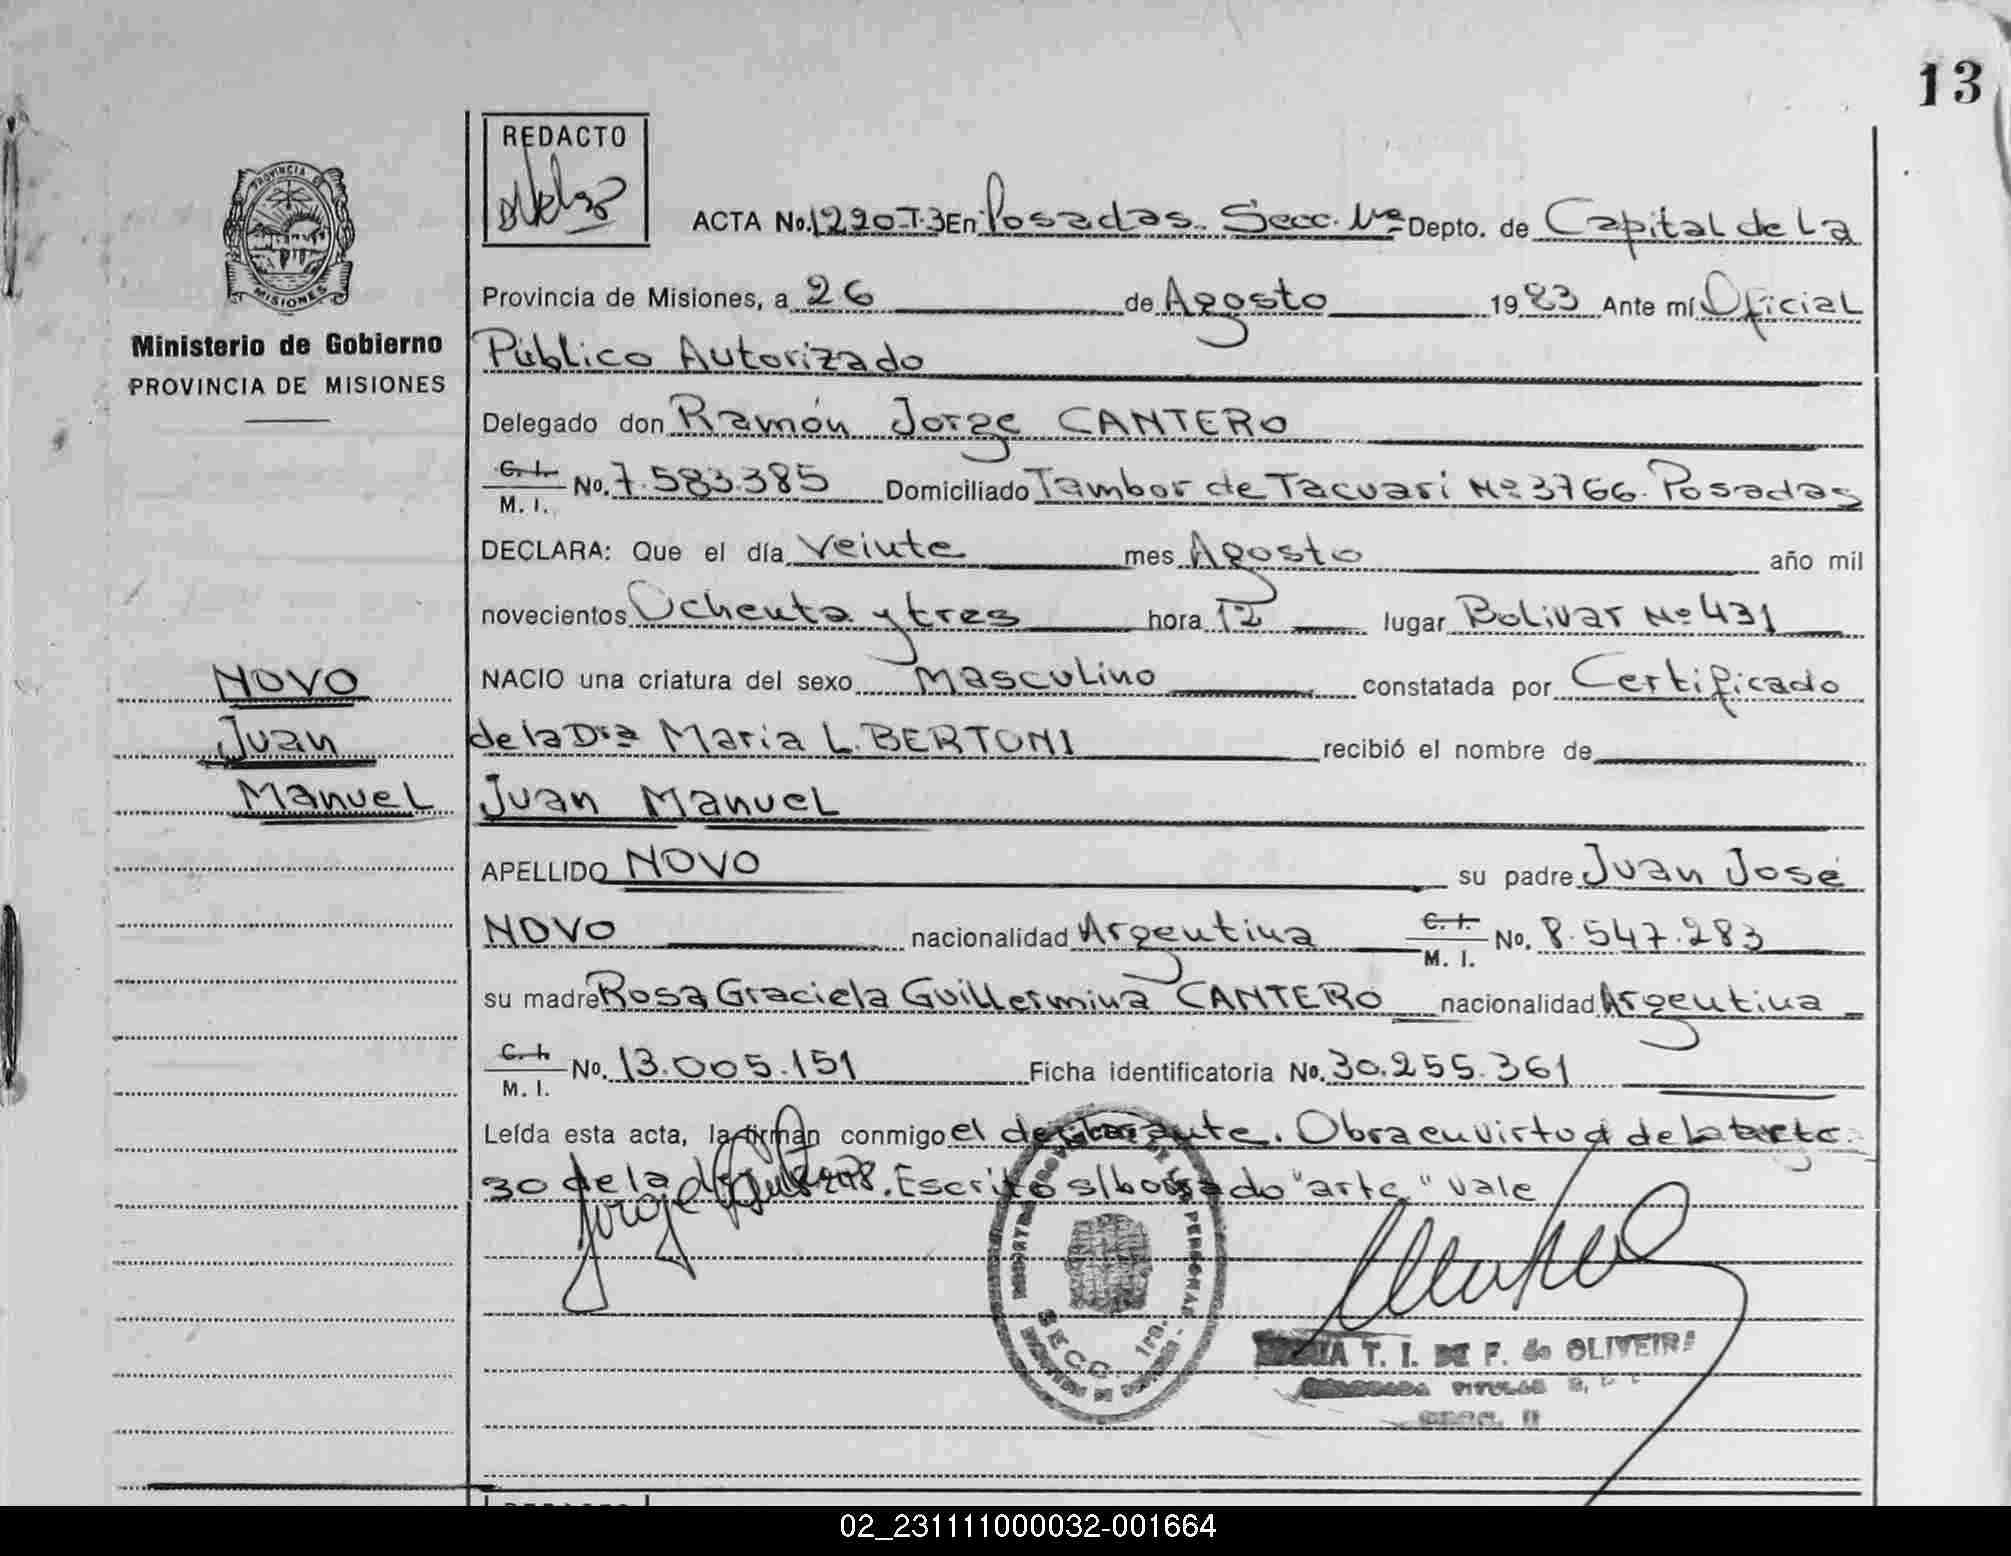 13
REDACTO
PROVINCIA D
MISIONES
Ministerio de Gobierno
PROVINCIA DE MISIONES
ACTA No. 1220-T.3 En Posadas. Secc. 1ra Depto. de Capital de La
Provincia de Misiones, a 26 de Agosto 1983 Ante mí Oficial
Público Autorizado
Delegado don Ramón Jorge CANTERO
C. I. M. I. No. 7.583.385 Domiciliado Tambor de Tacuari Nº 3766. Posadas
DECLARA: Que el día veinte mes Agosto año mil
novecientos Ochenta y tres hora 12 lugar Bolivar Nº 431
NACIO una criatura del sexo Masculino constatada por Certificado
de la Dra Maria L. BERTONI recibió el nombre de
Juan Manuel
NOVO
Juan
Manuel
APELLIDO NOVO su padre Juan José
NOVO nacionalidad Argentina C. I. M. I. No. 8.547.283
su madre Rosa Graciela Guillermina CANTERO nacionalidad Argentina
C. I. M. I. No. 13.005.151 Ficha identificatoria No. 30.255.361
Leída esta acta, la firman conmigo el declarante. Obra en virtud de la
30 de la Escrito s/borrado "artc" vale
SECC. 1ra.
T. I. DE F. de OLIVEIRA
TITULAR
02_231111000032-001664